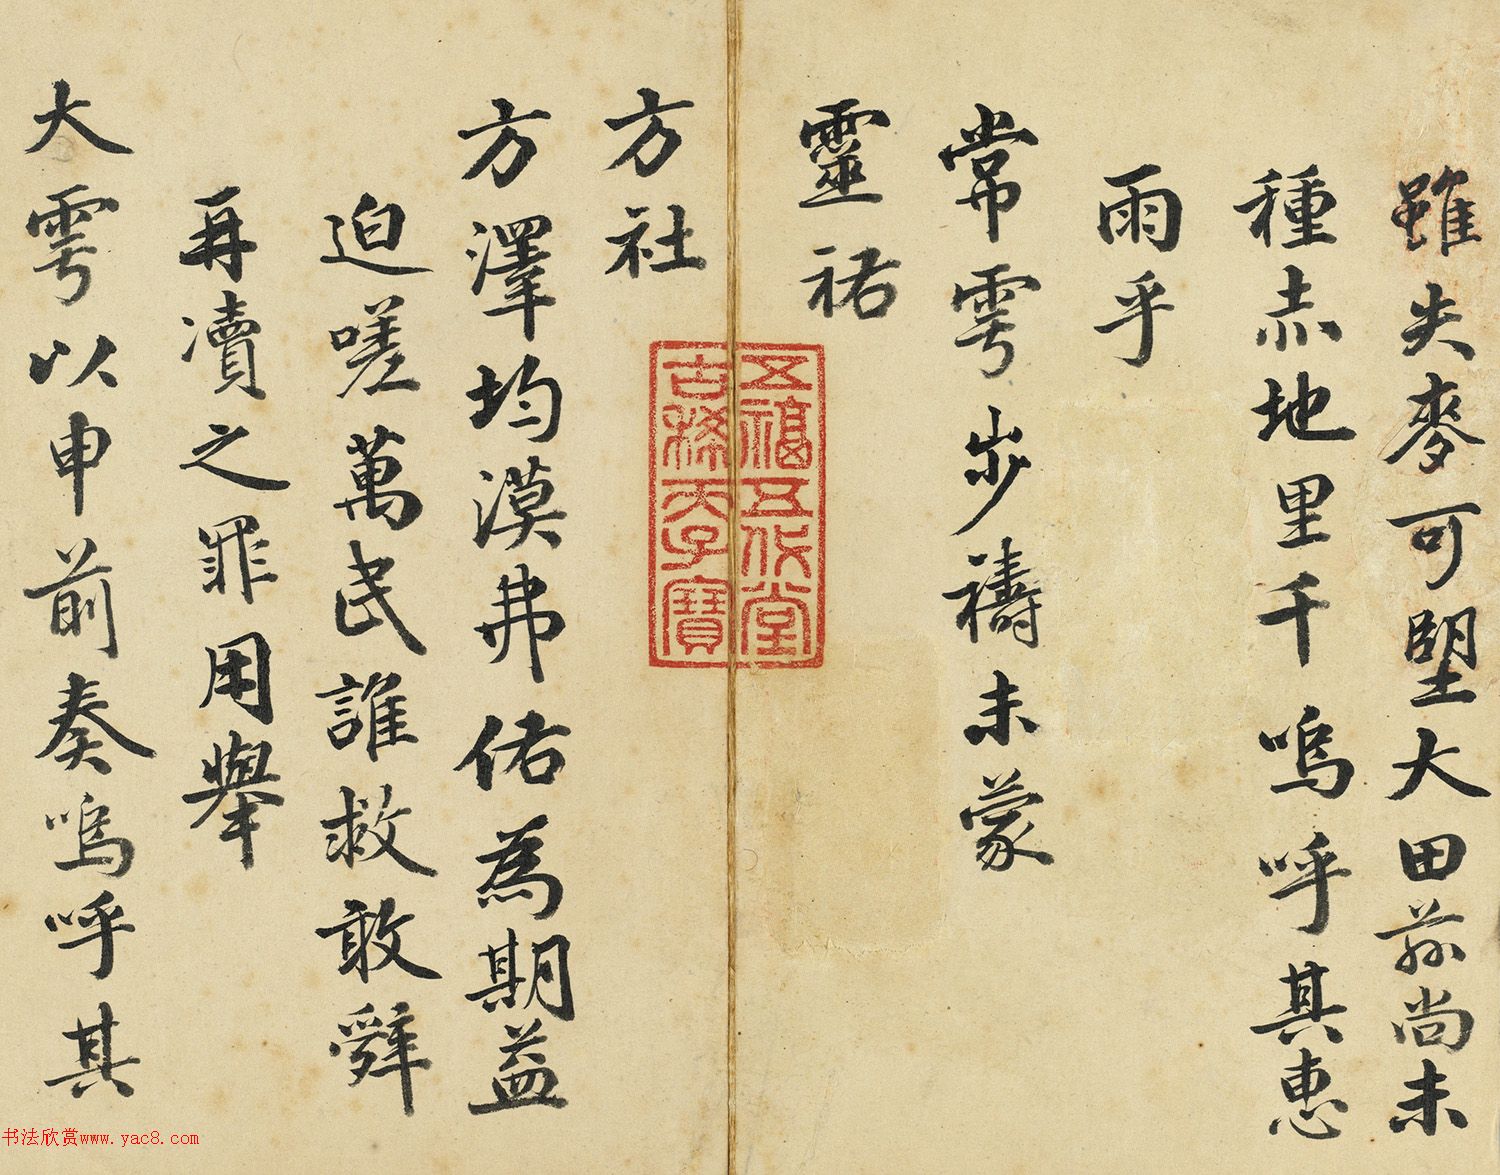 雖失麥可望大田茲尚未
種赤地里千嗚呼其惠
雨乎
常雩步禱未蒙
靈祐
方社
方澤均漠弗佑為期益
迫嗟萬民誰救敢辭
再瀆之罪用舉
大雩以申前奏嗚呼其
五福五代堂
古稀天子寶
书法欣赏www.yac8.com